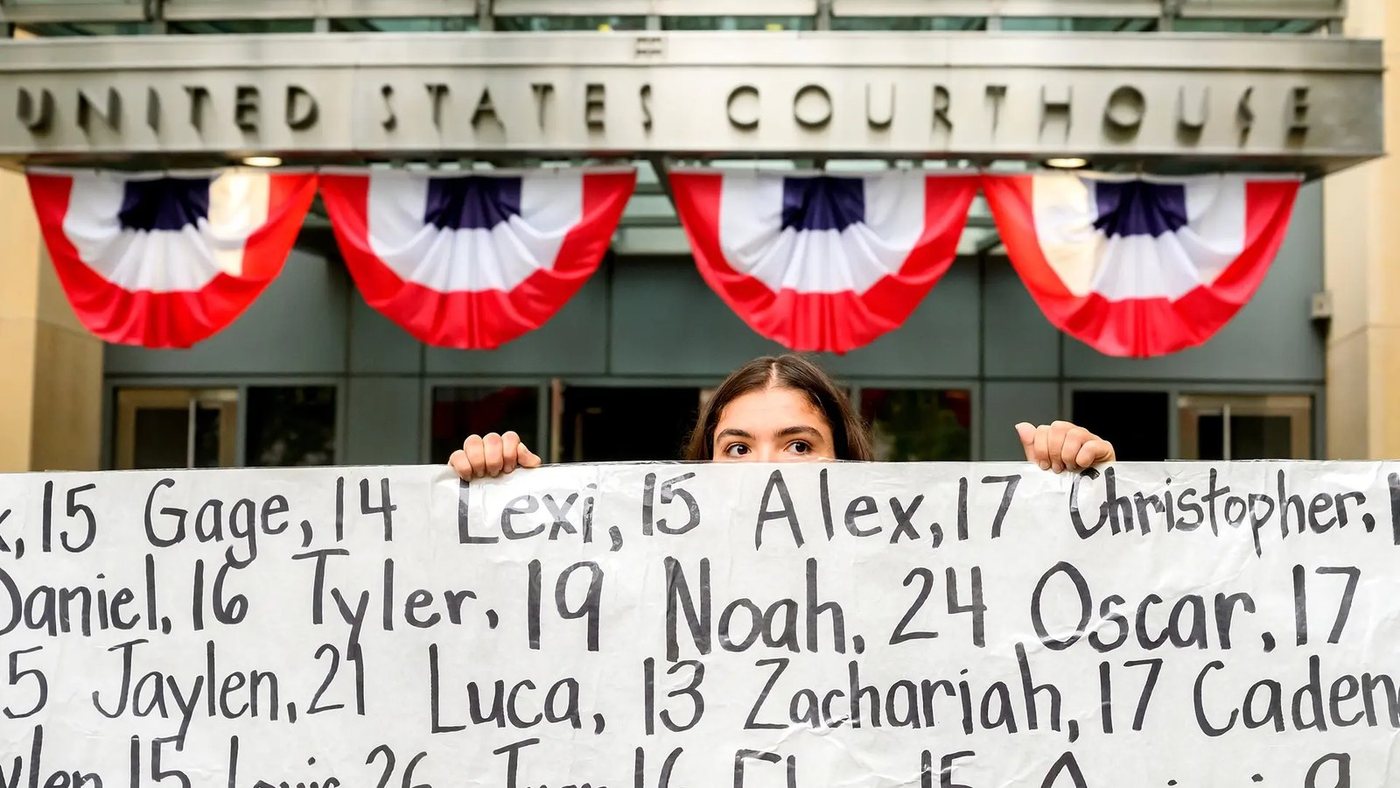 UNITED STATES COURTHOUSE
,15 Gage,14 Lexi,15 Alex,17 Christopher,
Daniel,16 Tyler,19 Noah,24 Oscar,17
5 Jaylen,21 Luca,13 Zachariah,17 Caden
15 Louis 26 16 15 9